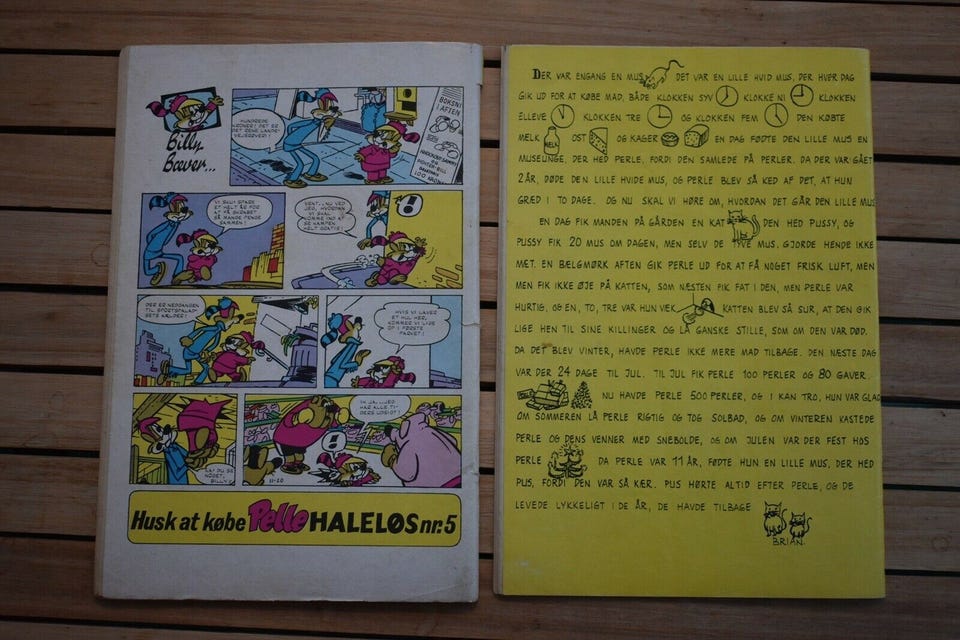 Billy
Bæver...
HUNDREDE
KRONER! DET ER
DET RENE LANDE-
VEJSRØVERI!
BOKSNING
I AFTEN
100 KRONER
VI SKAL SPARE
ET HELT ÅR FOR
AT FÅ SKRABET
SÅ MANGE PENGE
SAMMEN!
VENT... NU VED
JEG, HVORDAN
VI SKAL
KOMME IND OG
SE KAMPEN
HELT GRATIS!
!
DER ER NEDGANGEN
TIL SPORTSPALAD-
SETS KÆLDER!
HVIS VI LAVER
ET HUL HER,
KOMMER VI LIGE
OP I FØRSTE
PARKET!
KAN DU SE
NOGET,
BILLY?
UH JA, ...JEG
HAR ALLE TI-
DERS UDSIGT!
!
11-20
Husk at købe Pelle HALELØS nr. 5
DER VAR ENGANG EN MUS DET VAR EN LILLE HVID MUS, DER HVER DAG
GIK UD FOR AT KØBE MAD, BÅDE KLOKKEN SYV KLOKKE NI KLOKKEN
ELLEVE KLOKKEN TRE OG KLOKKEN FEM DEN KØBTE
MELK OST OG KAGER EN DAG FØDTE DEN LILLE MUS EN
MUSELINGE, DER HED PERLE, FORDI DEN SAMLEDE PÅ PERLER. DA DER VAR GÅET
2 ÅR, DØDE DEN LILLE HVIDE MUS, OG PERLE BLEV SÅ KED AF DET, AT HUN
GRÆD I TO DAGE. OG NU SKAL VI HØRE OM, HVORDAN DET GÅR DEN LILLE MUS
EN DAG FIK MANDEN PÅ GÅRDEN EN KAT DEN HED PUSSY, OG
PUSSY FIK 20 MUS OM DAGEN, MEN SELV DE TYVE MUS, GJORDE HENDE IKKE
MET. EN BÆLGMØRK AFTEN GIK PERLE UD FOR AT FÅ NOGET FRISK LUFT, MEN
MEN FIK IKKE ØJE PÅ KATTEN, SOM NÆSTEN FIK FAT I DEN, MEN PERLE VAR
HURTIG, OG EN, TO, TRE VAR HUN VÆK KATTEN BLEV SÅ SUR, AT DEN GIK
LIGE HEN TIL SINE KILLINGER OG LÅ GANSKE STILLE, SOM OM DEN VAR DØD.
DA DET BLEV VINTER, HAVDE PERLE IKKE MERE MAD TILBAGE. DEN NÆSTE DAG
VAR DER 24 DAGE TIL JUL. TIL JUL FIK PERLE 100 PERLER OG 80 GAVER.
NU HAVDE PERLE 500 PERLER, OG I KAN TRO, HUN VAR GLAD
OM SOMMEREN LÅ PERLE RIGTIG OG TOG SOLBAD, OG OM VINTEREN KASTEDE
PERLE OG DENS VENNER MED SNEBOLDE, OG OM JULEN VAR DER FEST HOS
PERLE DA PERLE VAR 11 ÅR, FØDTE HUN EN LILLE MUS, DER HED
PUS, FORDI DEN VAR SÅ KÆR. PUS HØRTE ALTID EFTER PERLE, OG DE
LEVEDE LYKKELIGT I DE ÅR, DE HAVDE TILBAGE
BRIAN.